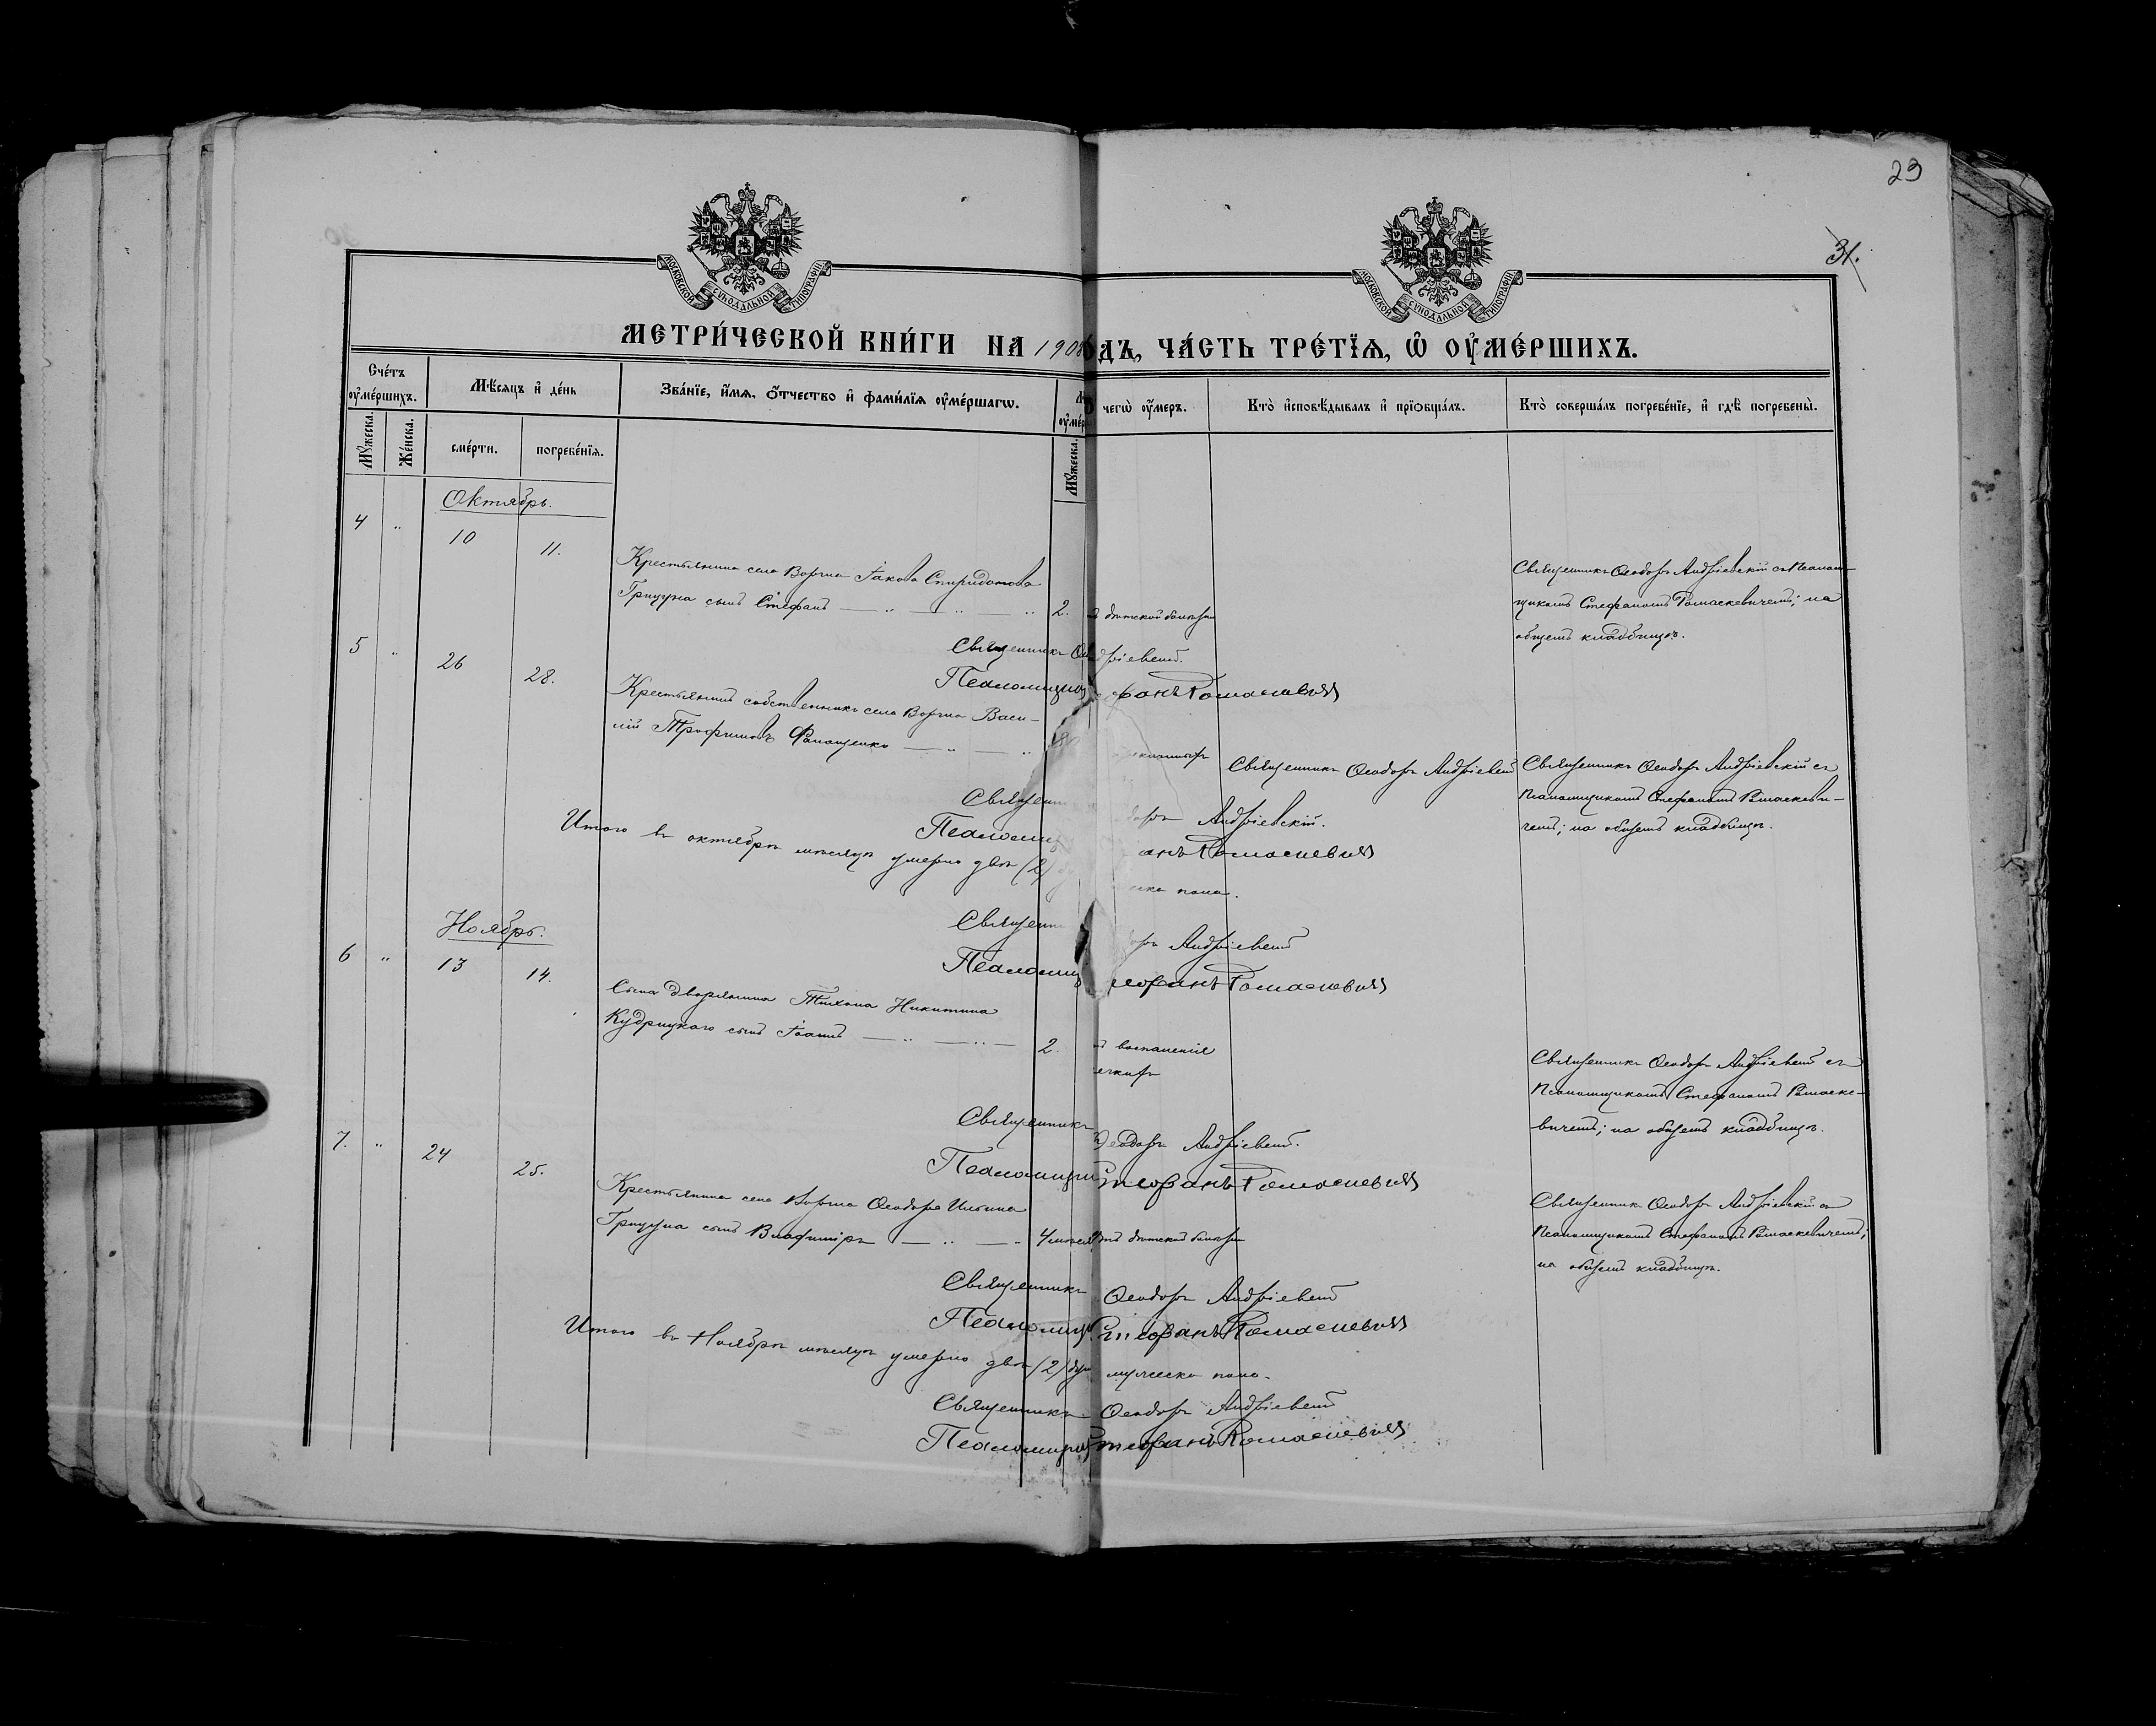 23
31.
МОСКОВСКОЙ СѴНОДАЛЬНОЙ ТИПОГРАФІИ
МОСКОВСКОЙ СѴНОДАЛЬНОЙ ТИПОГРАФІИ
МЕТРИ́ЧЕСКОЙ КНИ́ГИ НА 1908 ДЪ, ЧА́СТЬ ТРЕ́ТЇѦ, Ѡ ОУ҆МЕ́РШИХЪ.
Сче́тъ оу҆ме́ршихъ.
Мѣ́сяцъ и҆ де́нь
Зва́нїе, и҆́мѧ, ѻ҆́тчество и҆ фами́лїѧ оу҆ме́ршагѡ.
чегѡ̀ оу҆́меръ.
Кто̀ и҆сповѣ́дывалъ и҆ прїѡбща́лъ.
Кто̀ соверша́лъ погребе́нїе, и҆ гдѣ̀ погребены̀.
Мꙋ́жеска.
Же́нска.
сме́рти.
погребе́нїѧ.
Мꙋ́жеска.
Октябрь.
4 " 10 11.
Крестьянина села Воргла Іакова Спиридонова
Грицуна сынъ Стефанъ — " — " — " 2. дѣтской болѣзни
Священникъ Ѳеодоръ Андріевскій съ Псалом-
щикомъ Стефаномъ Ромаскевичемъ; на
общемъ кладбищѣ.
Священникъ
Псаломщикъ Ромаскевичъ
5 " 26 28.
Крестьянинъ собственникъ села Воргла Васи-
лій Трофимовъ — " — "
Священникъ Ѳеодоръ Андріевскій
Священникъ Ѳеодоръ Андріевскій съ
Псаломщикомъ Стефаномъ Ромаскеви-
чемъ; на общемъ кладбищѣ.
Священ Андріевскій.
Псаломщ Ромаскевичъ
Итого въ октябрѣ мѣсяцѣ умерло двѣ (2) пола.
Священ Андріевскій
Псаломщ Ромаскевичъ
Ноябрь.
6 " 13 14.
Сына дворянина Тихона Никитина
Кудрицкаго сынъ Іоаннъ — " — " — 2. воспаленія
Священникъ Ѳеодоръ Андріевскій съ
Псаломщикомъ Стефаномъ Ромаске-
вичемъ; на общемъ кладбищѣ.
Священникъ Ѳеодоръ Андріевскій.
Псаломщикъ Стефанъ Ромаскевичъ
7. " 24 25.
Крестьянина села Воргла Ѳеодора Ильина
Грицуна сынъ Владиміръ — " — " 4 мѣсяц Отъ дѣтской болѣзни
Священникъ Ѳеодоръ Андріевскій съ
Псаломщикомъ Стефаномъ Ромаскевичемъ;
на общемъ кладбищѣ.
Священникъ Ѳеодоръ Андріевскій
Псаломщикъ Стефанъ Ромаскевичъ
Итого въ Ноябрѣ мѣсяцѣ умерло двѣ (2) души мужеска пола.
Священникъ Ѳеодоръ Андріевскій
Псаломщикъ Стефанъ Ромаскевичъ